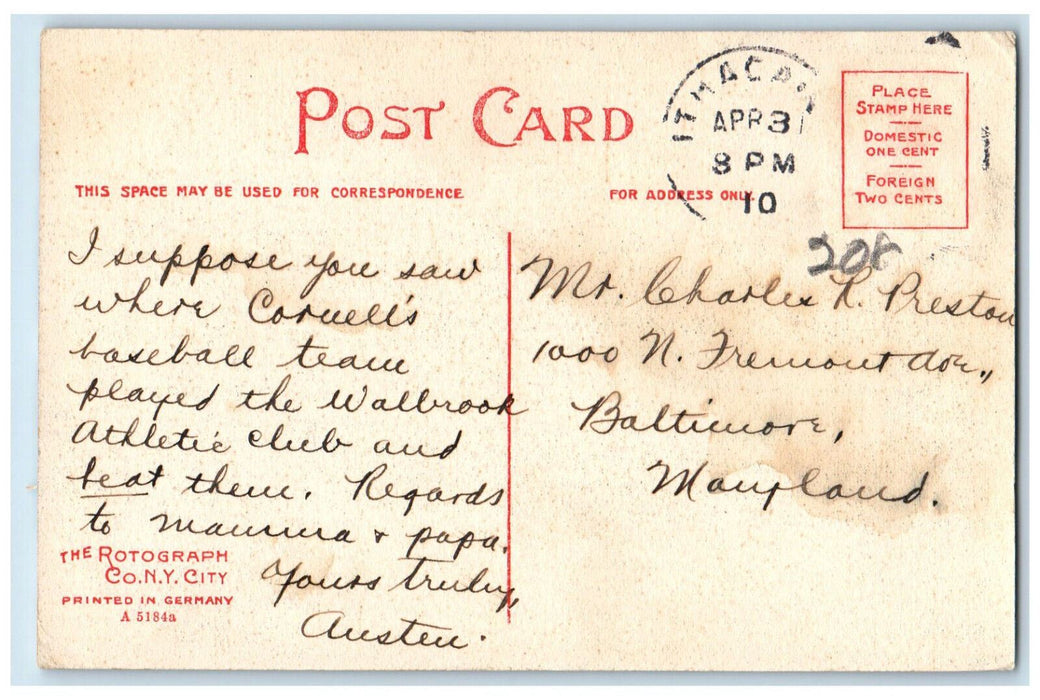 POST CARD
ITHACA
APR 3
8 PM
10
PLACE
STAMP HERE
DOMESTIC
ONE CENT
FOREIGN
TWO CENTS
THIS SPACE MAY BE USED FOR CORRESPONDENCE
FOR ADDRESS ONLY.
208
I suppose you saw
where Cornell's
baseball team
played the Walbrook
Athletic club and
beat them. Regards
to mamma + papa.
Yours truly,
Austen.
Mr. Charles R. Preston
1000 N. Fremont Ave.,
Baltimore,
Maryland.
THE ROTOGRAPH
CO. N.Y. CITY
PRINTED IN GERMANY
A 5184a